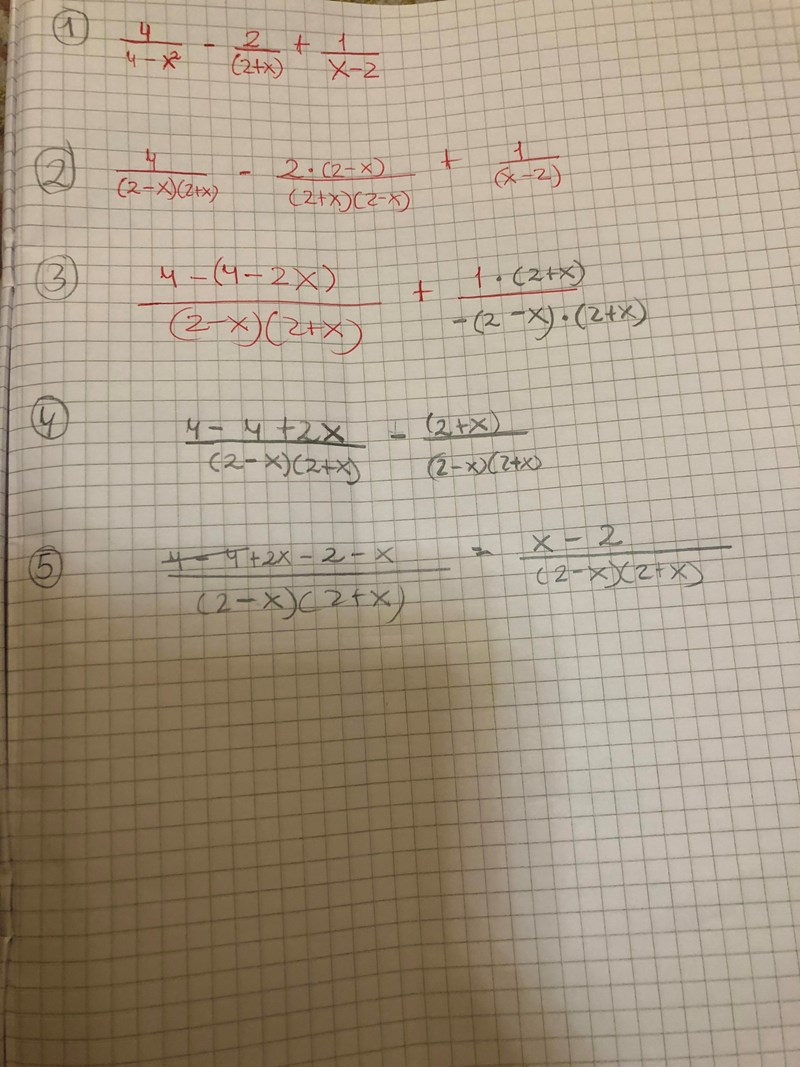 ① 4/(4-x²) - 2/(2+x) + 1/(x-2)
② 4/((2-x)(2+x)) - 2·(2-x)/((2+x)(2-x)) + 1/(x-2)
③ (4-(4-2x))/((2-x)(2+x)) + 1·(2+x)/(-(2-x)·(2+x))
④ (4-4+2x)/((2-x)(2+x)) - (2+x)/((2-x)(2+x))
⑤ (4-4+2x-2-x)/((2-x)(2+x)) = (x-2)/((2-x)(2+x))